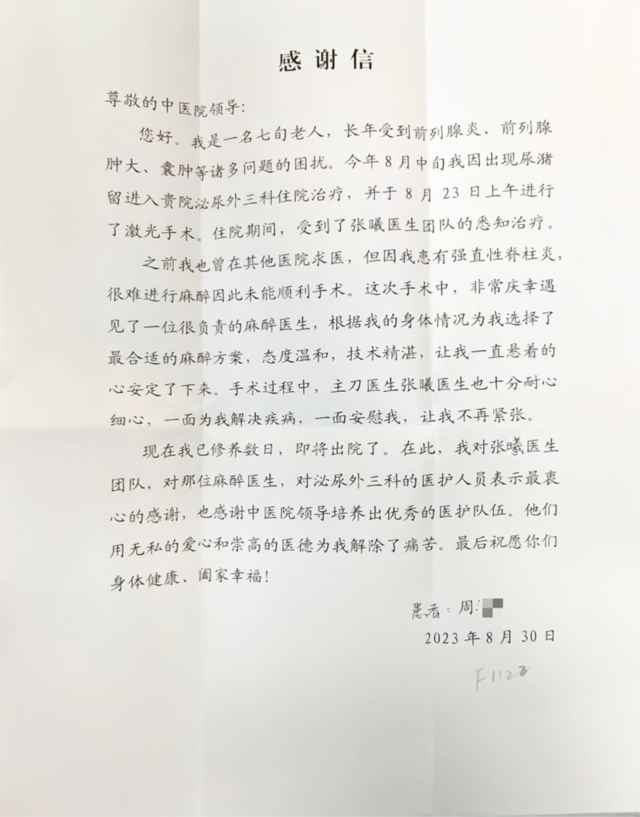 感谢信
尊敬的中医院领导：
您好。我是一名七旬老人，长年受到前列腺炎、前列腺
肿大、囊肿等诸多问题的困扰。今年8月中旬我因出现尿潴
留进入贵院泌尿外三科住院治疗，并于8月23日上午进行
了激光手术。住院期间，受到了张曦医生团队的悉知治疗。
之前我也曾在其他医院求医，但因我患有强直性脊柱炎，
很难进行麻醉因此未能顺利手术。这次手术中，非常庆幸遇
见了一位很负责的麻醉医生，根据我的身体情况为我选择了
最合适的麻醉方案，态度温和，技术精湛，让我一直悬着的
心安定了下来。手术过程中，主刀医生张曦医生也十分耐心
细心，一面为我解决疾病，一面安慰我，让我不再紧张。
现在我已修养数日，即将出院了。在此，我对张曦医生
团队，对那位麻醉医生，对泌尿外三科的医护人员表示最衷
心的感谢，也感谢中医院领导培养出优秀的医护队伍。他们
用无私的爱心和崇高的医德为我解除了痛苦。最后祝愿你们
身体健康、阖家幸福！
患者：周
2023年8月30日